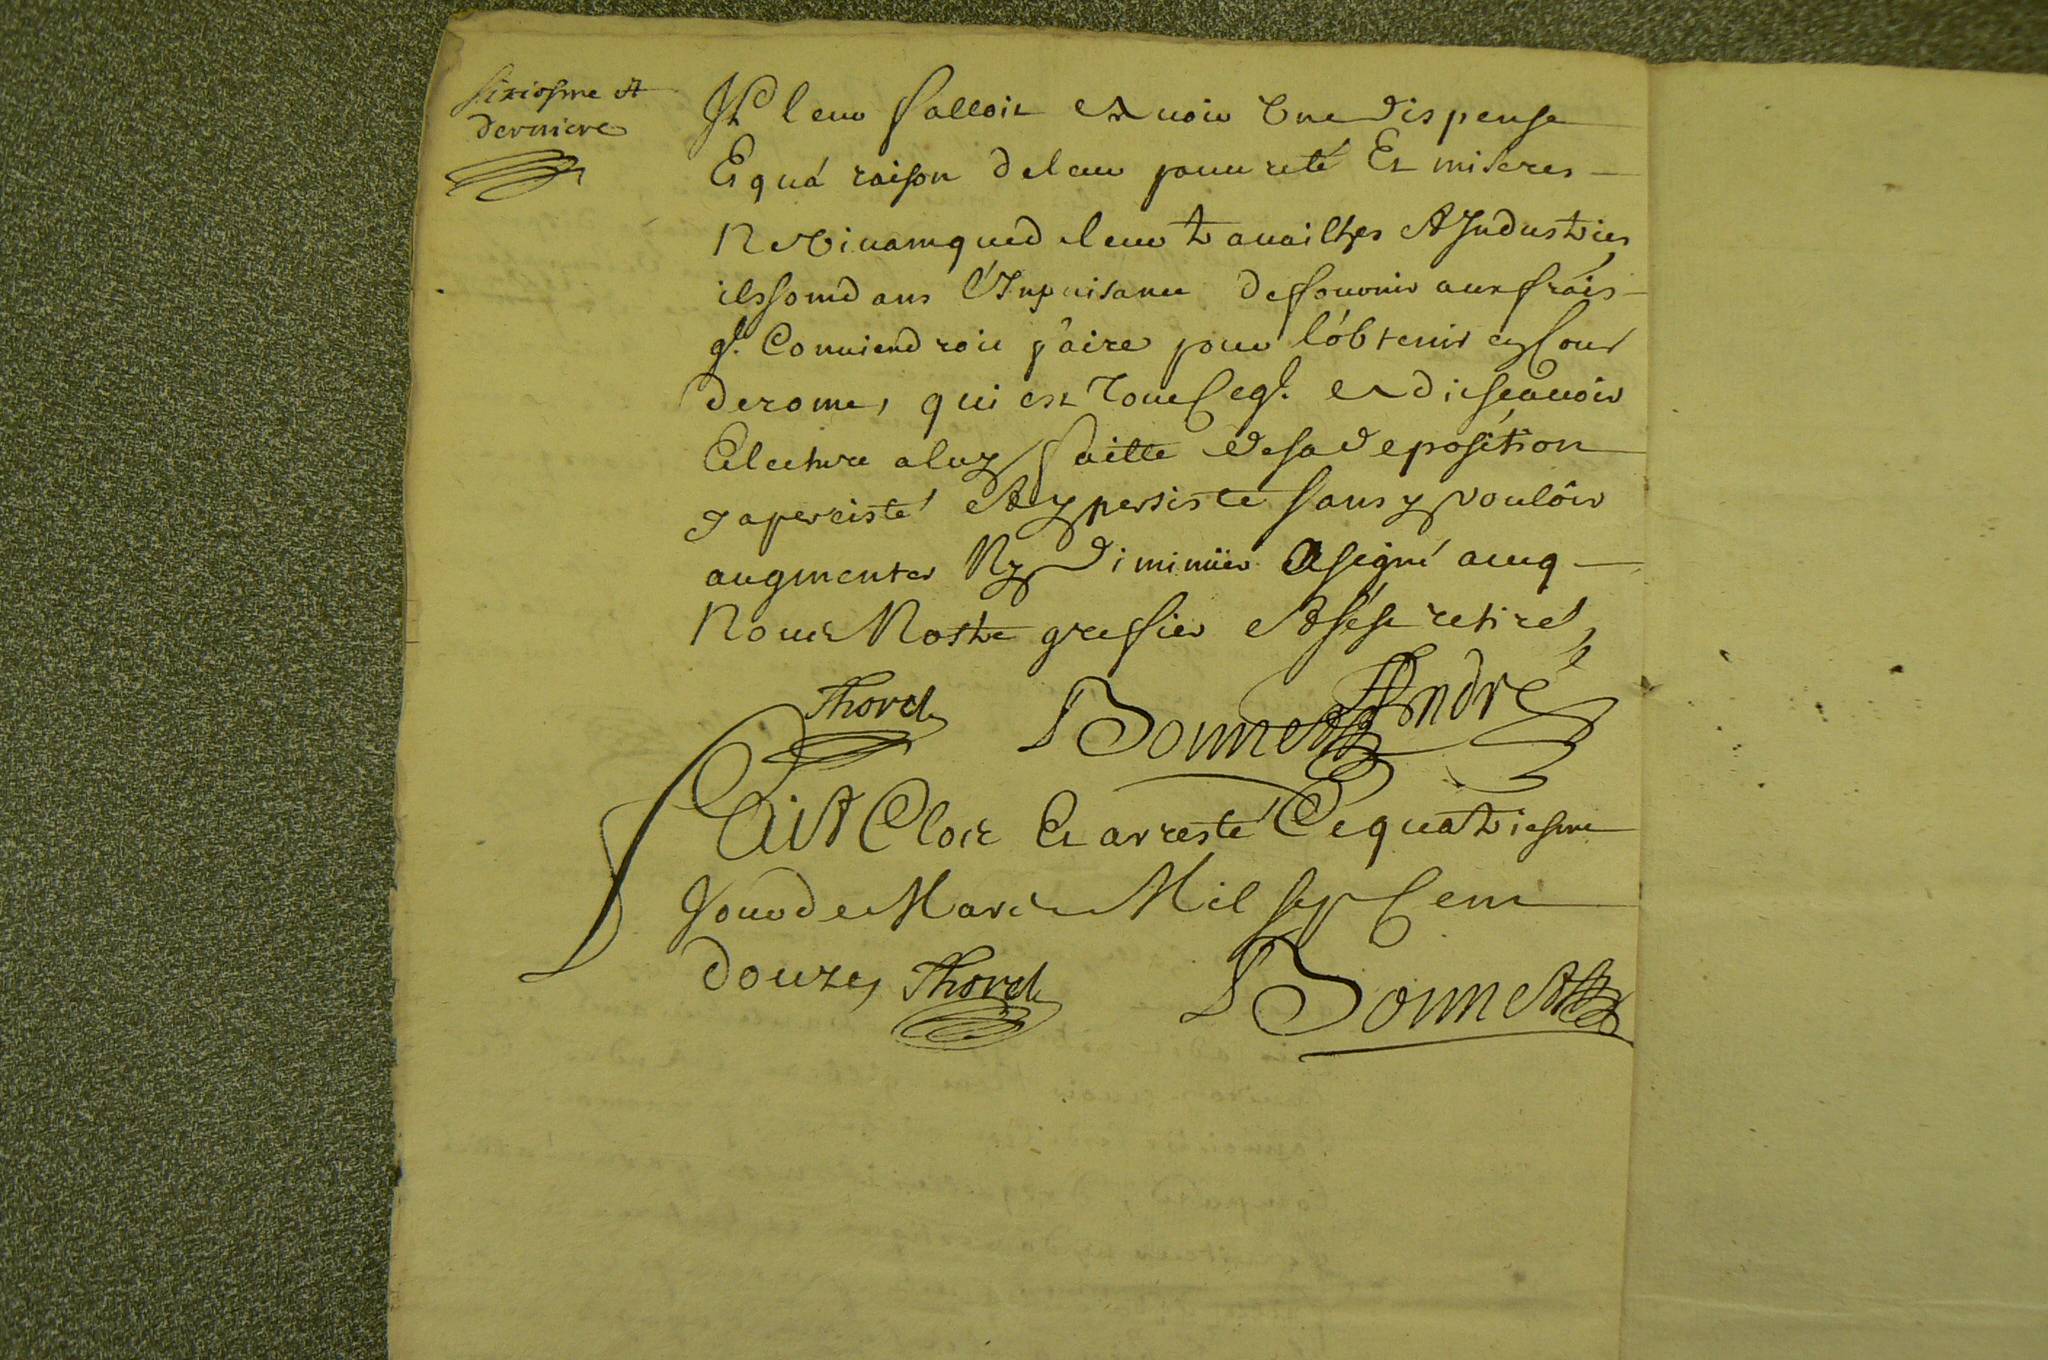 sixiesme et
derniere
Jl leur falloit avoir une dispense
Et qu'á raison de leur pauureté Et miseres
Ne viuant que de leur travailhes et Industries
ils sont dans l'Inpuisance de fournir aux frais
ql. Conuiendroit faire pour l'obtenir en Cour
de rome, qui est tout Ce ql. a dit sçauoir
Et lecture a luy faitte de sa deposition
y a persisté et y persiste sans y vouloir
augmenter Ny diminüer a signé aueq
Nous et Nostre greffier et s'est retiré,
Thorel Bonnet André
Fait Clos Et arresté Ce quatriesme
Jour de Mars Mil sept Cent
douze, Thorel Bonnet